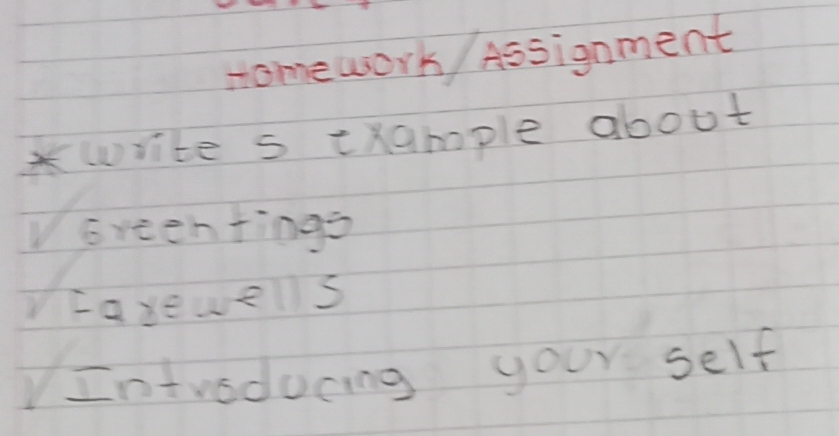 Homework/Assignment
* write 5 example about
√ Greentings
√ Farewells
√ Introducing your self